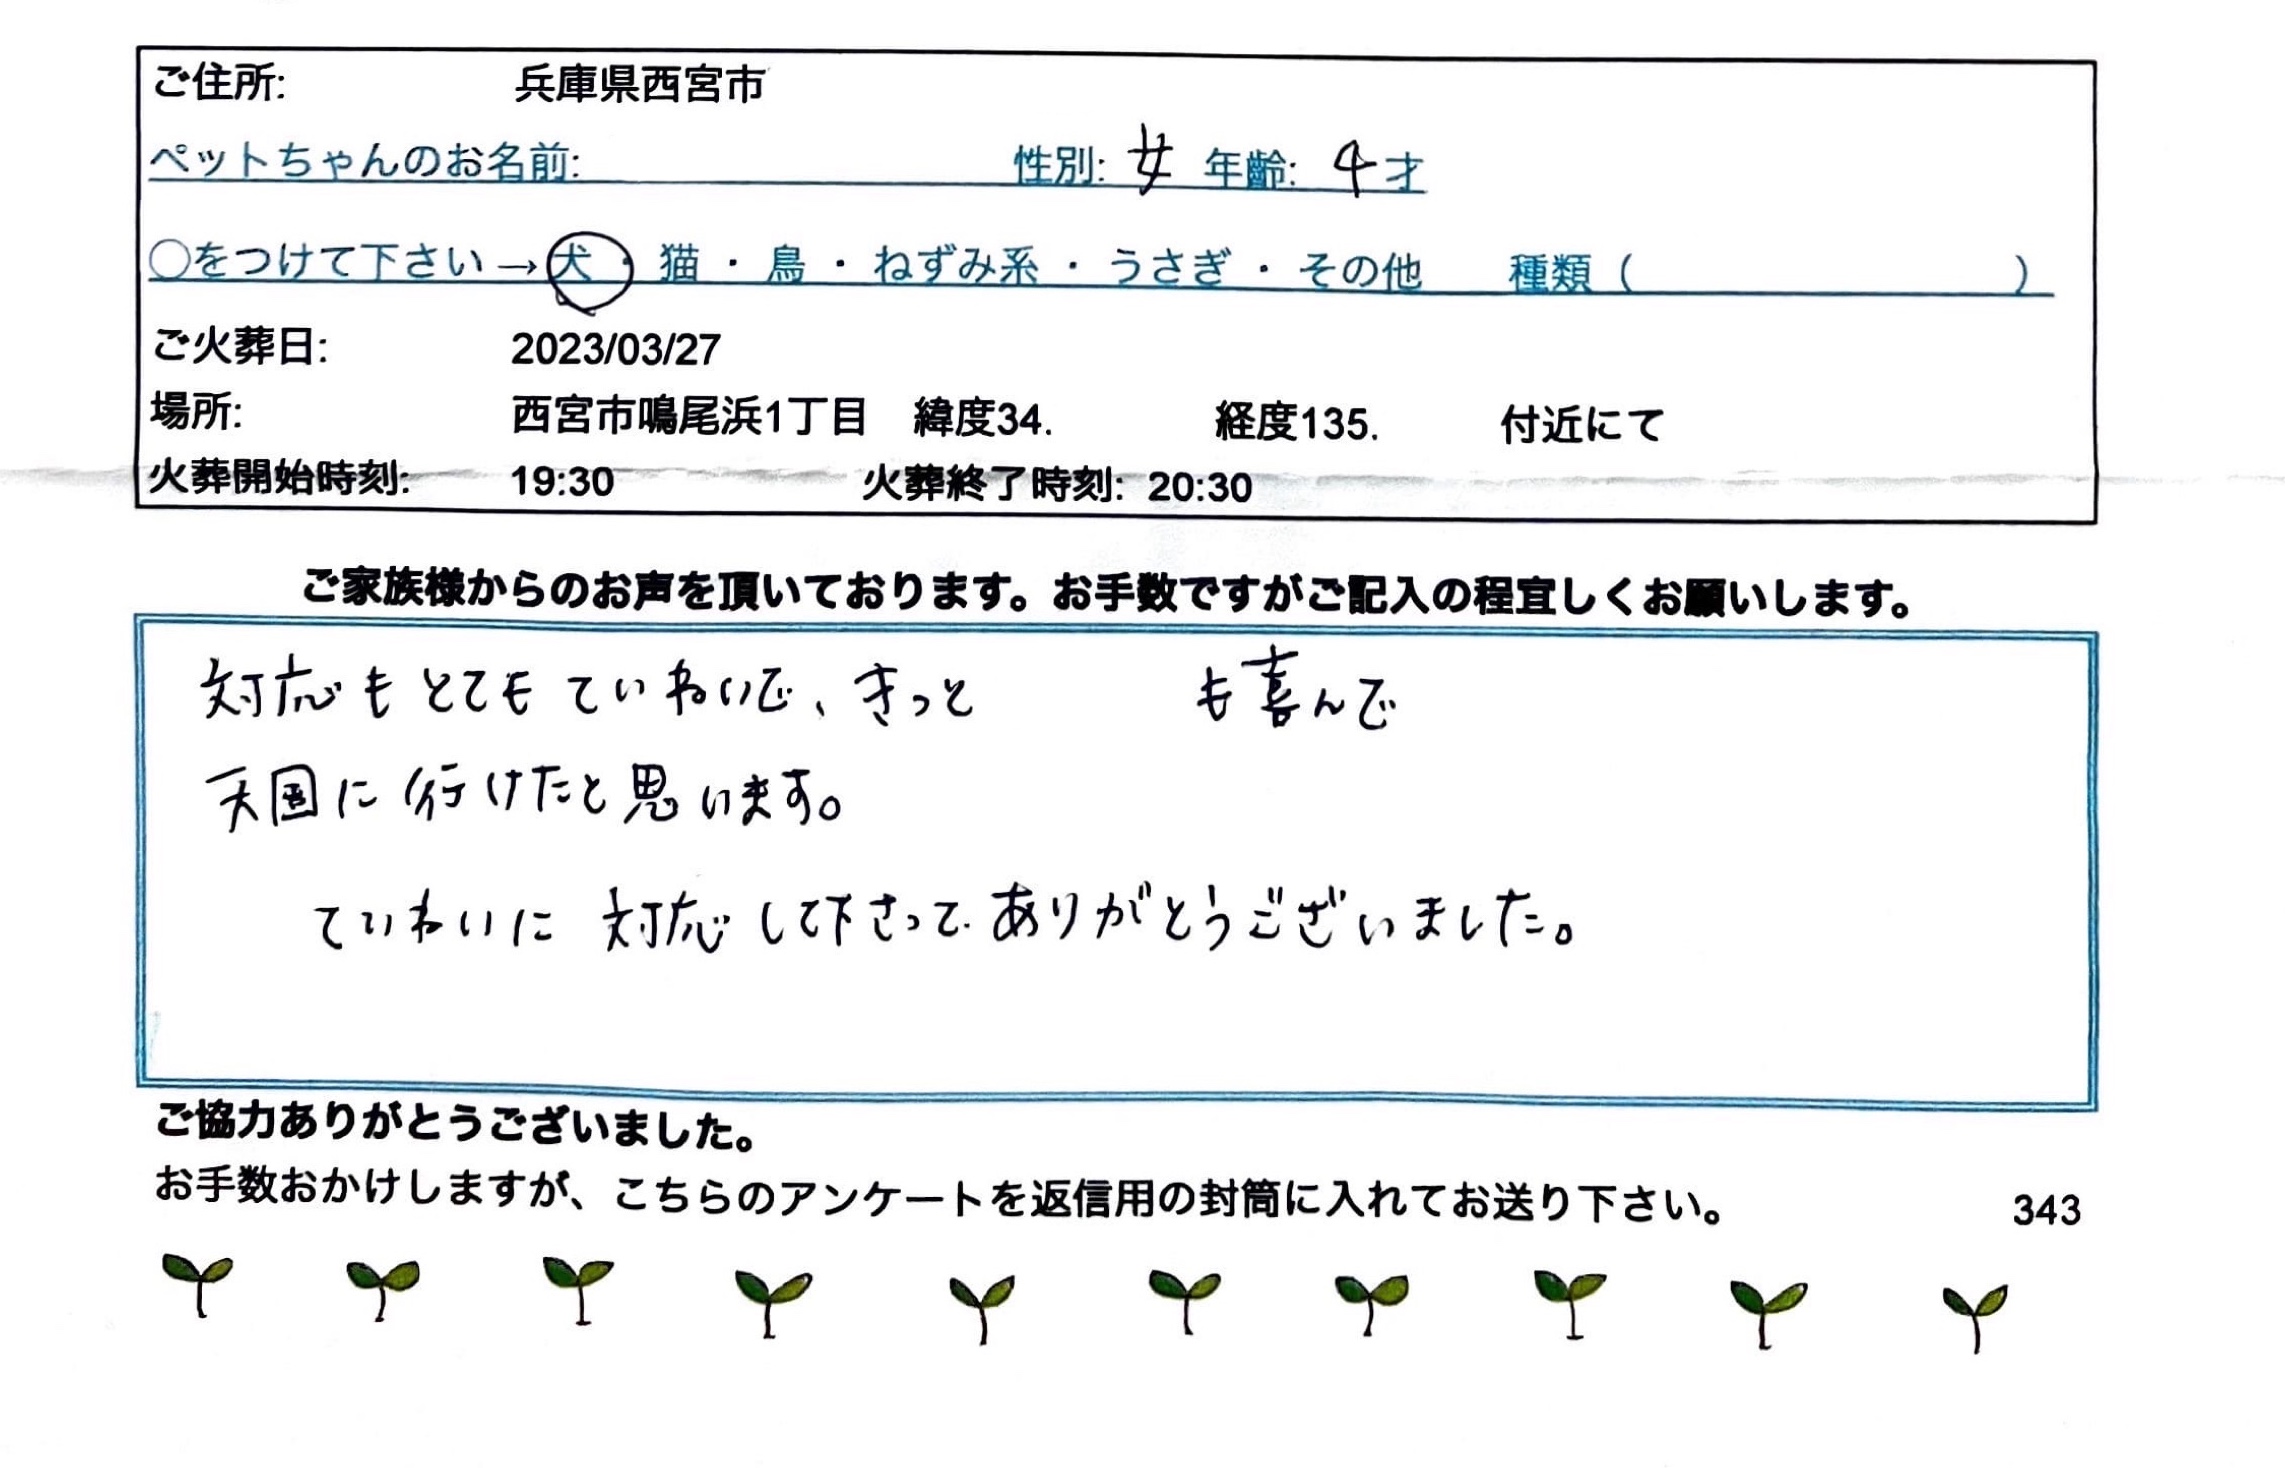 ご住所: 兵庫県西宮市
ペットちゃんのお名前: 性別: 女 年齢: 4才
○をつけて下さい→犬・猫・鳥・ねずみ系・うさぎ・その他 種類（ ）
ご火葬日: 2023/03/27
場所: 西宮市鳴尾浜1丁目 緯度34. 経度135. 付近にて
火葬開始時刻: 19:30 火葬終了時刻: 20:30
ご家族様からのお声を頂いております。お手数ですがご記入の程宜しくお願いします。
対応もとてもていねいで、きっと も喜んで
天国に行けたと思います。
ていねいに対応して下さって.ありがとうございました。
ご協力ありがとうございました。
お手数おかけしますが、こちらのアンケートを返信用の封筒に入れてお送り下さい。 343